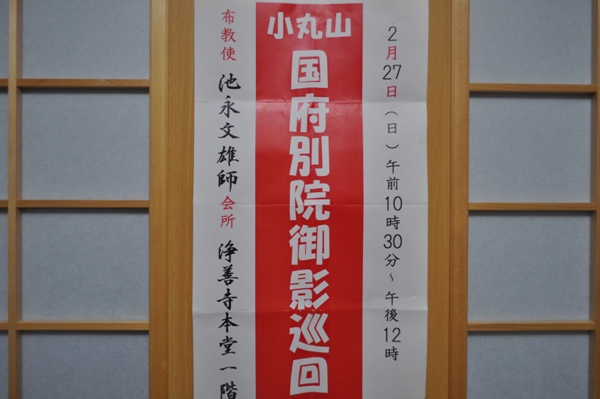 2月27日（日）午前10時30分～午後12時
小丸山
国府別院御影巡回
布教使 池永文雄師 会所 浄善寺本堂一階